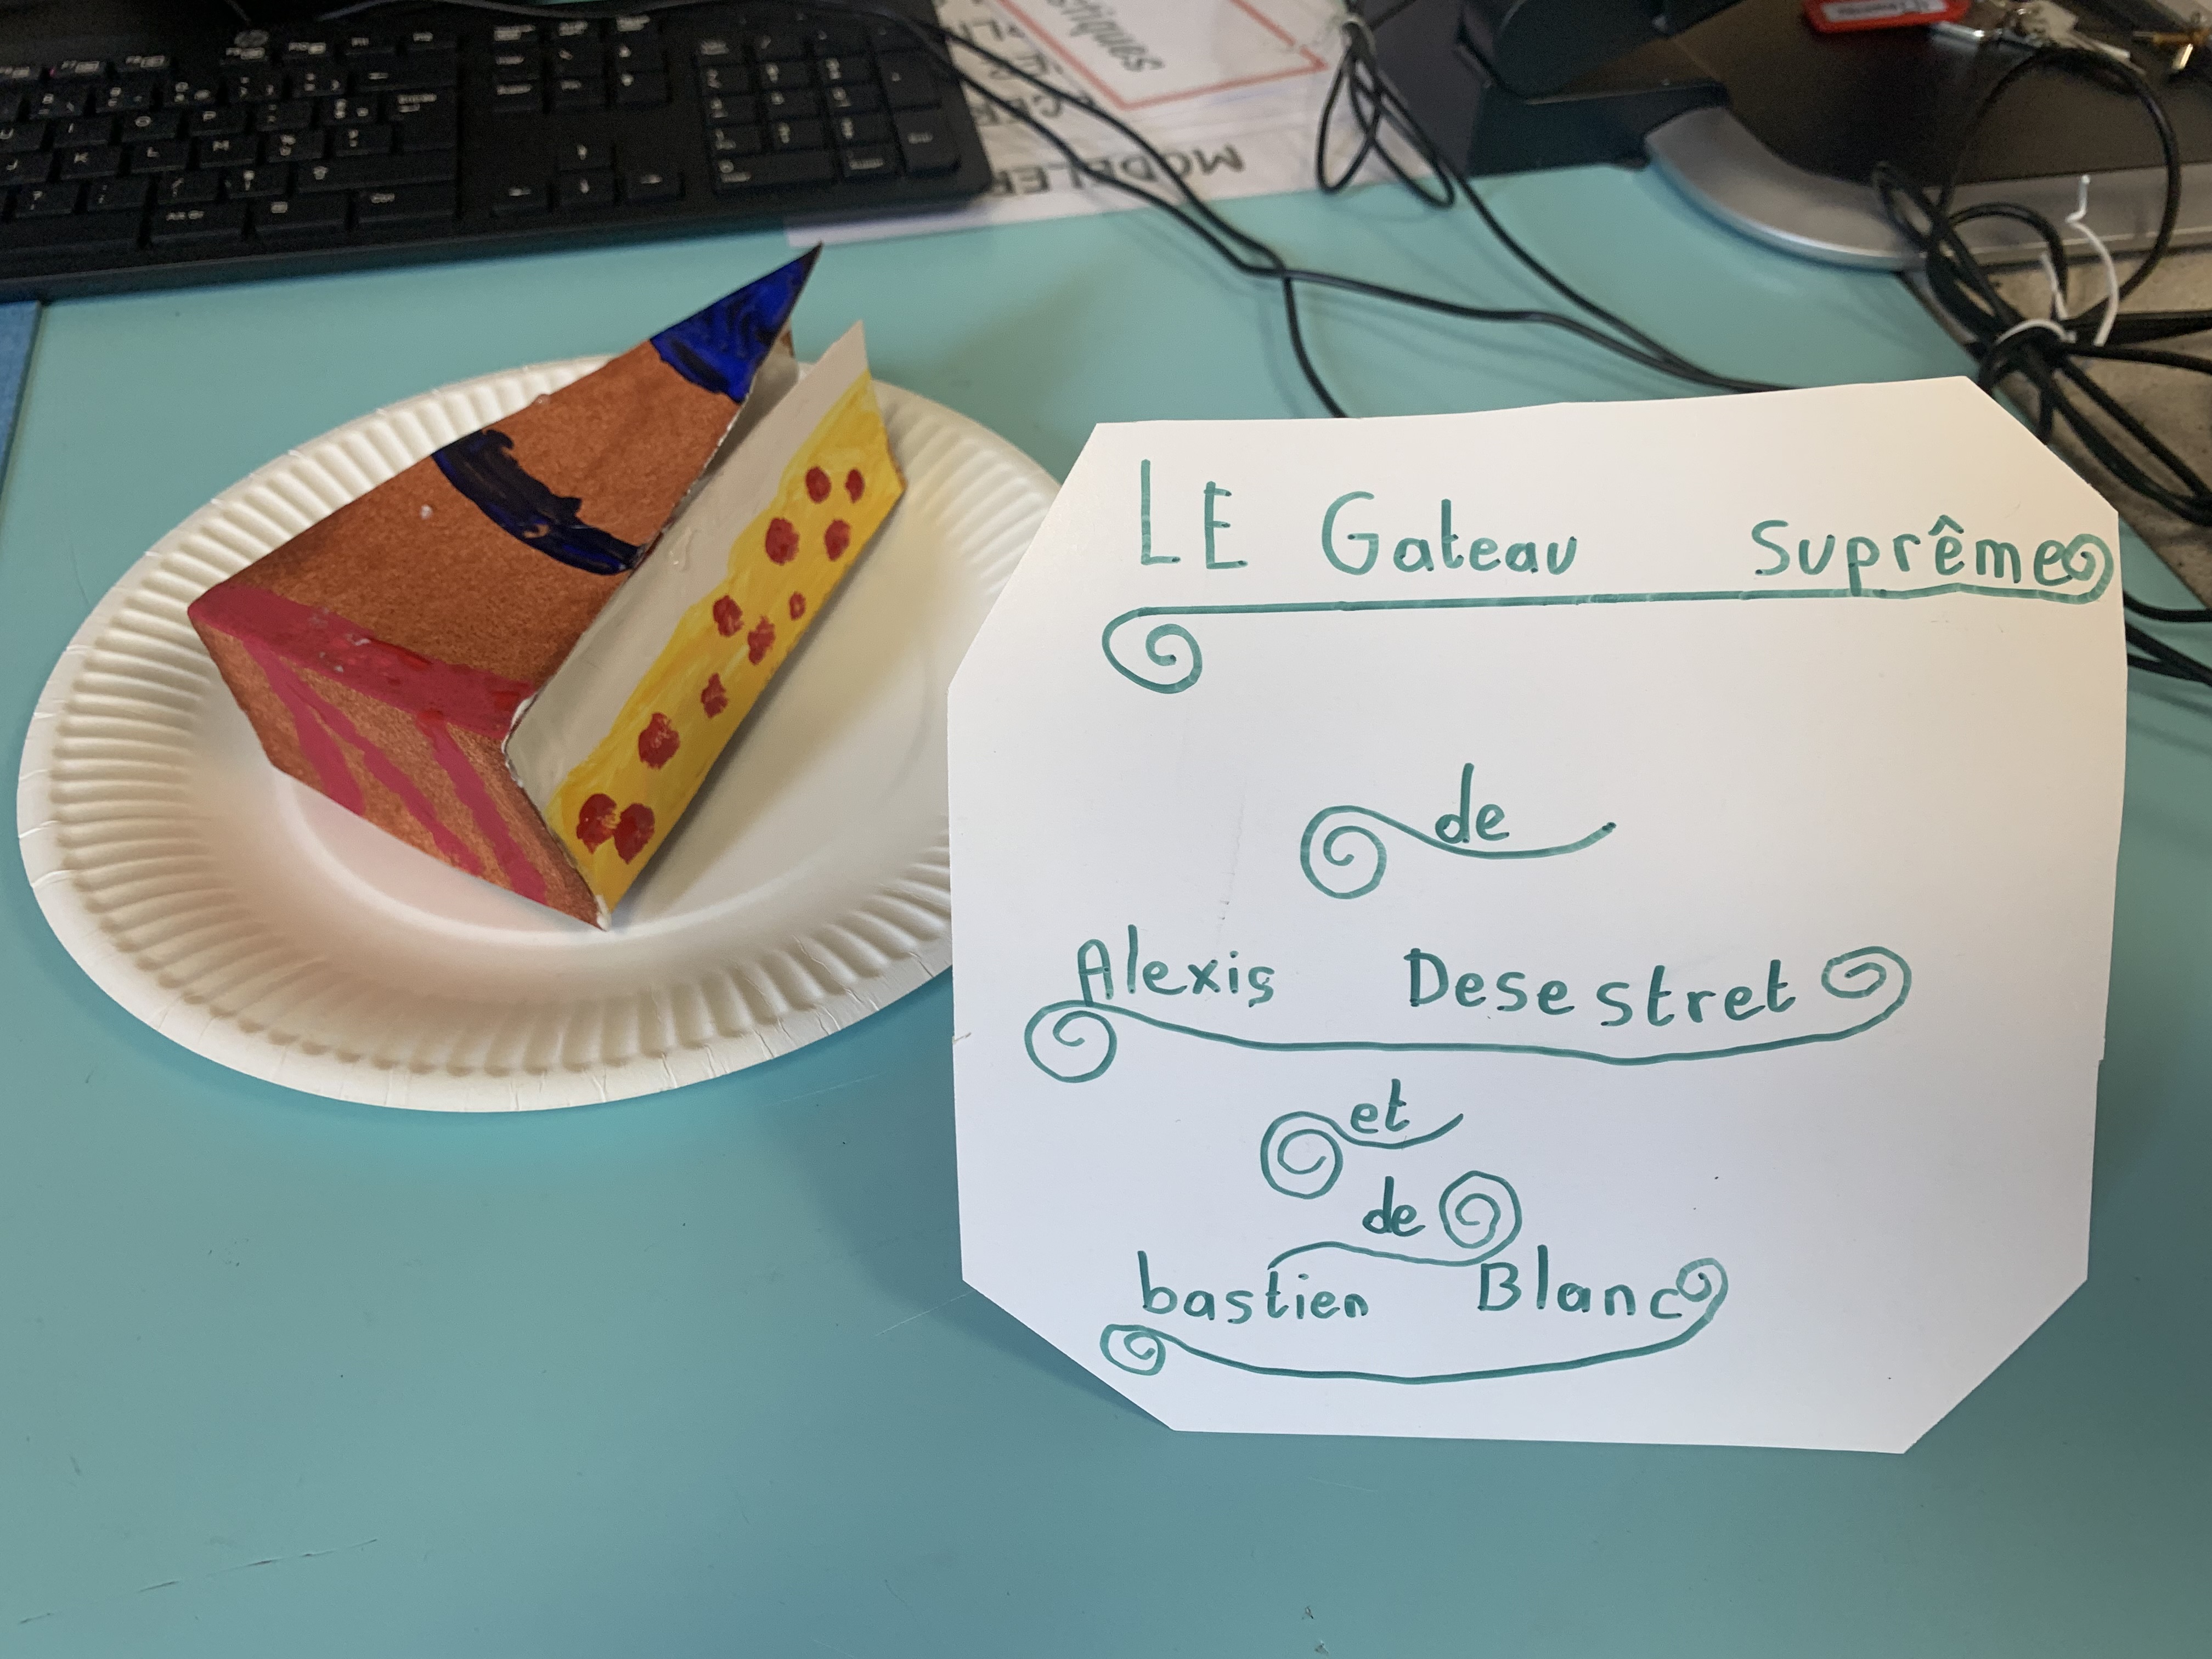 LE Gateau Suprême
de
Alexis Desestret
et
de
bastien Blanc
MODELER
stiques